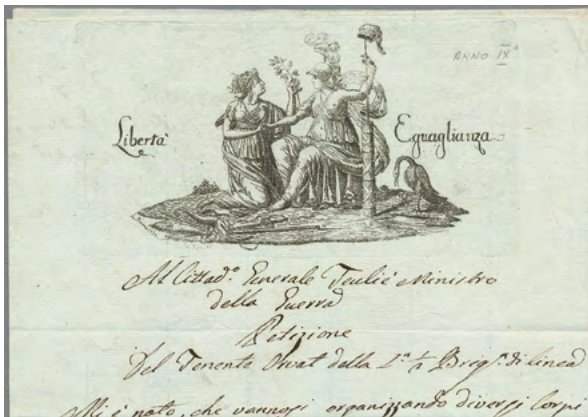 ANNO IXº
Libertà
Eguaglianza
Al Cittadº. Generale Teuliè Ministro
della Guerra
Petizione
Del Tenente della 1ª ½ Brigª. di linea
Mi è noto, che vannosi organizzando diversi Corpi